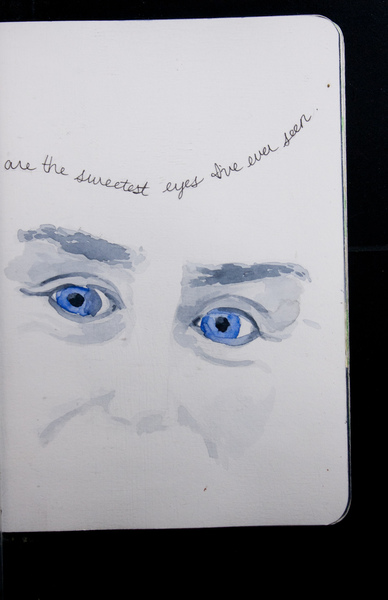 are the sweetest eyes I've ever seen.